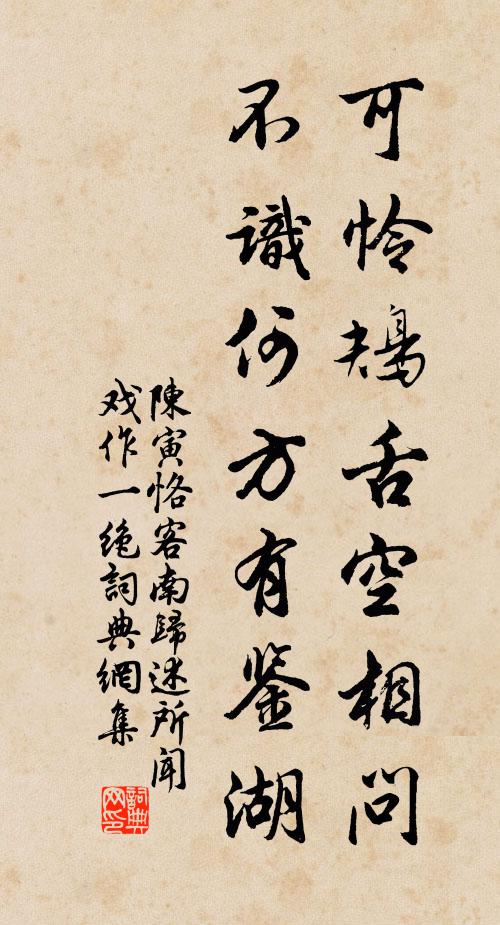 可怜鴂舌空相問
不識何方有鉴湖
陳寅恪客南歸述所聞
戏作一絶詞典網集
詞典
网印